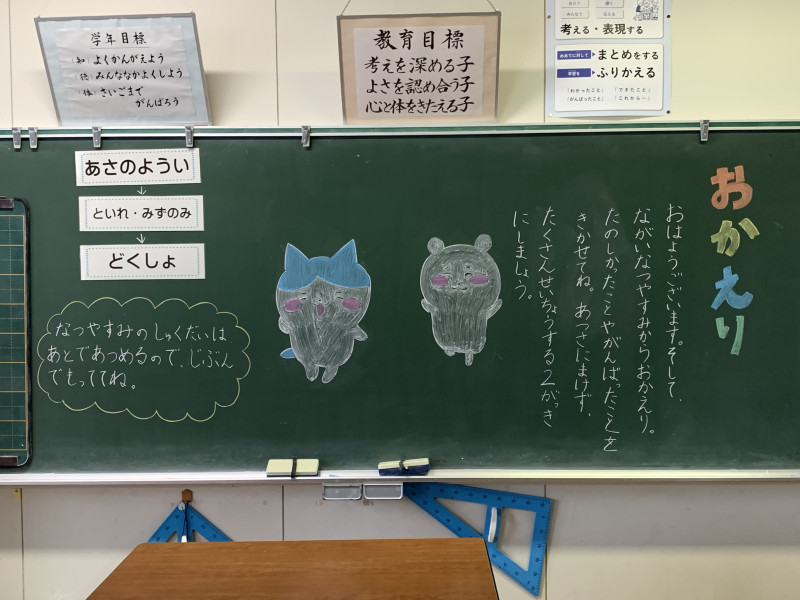 学年目標
(知) よくかんがえよう
(徳) みんななかよくしよう
(体) さいごまで
がんばろう
教育目標
考えを深める子
よさを認め合う子
心と体をきたえる子
考える・表現する
まとめをする
ふりかえる
「わかったこと」
「できたこと」
「がんばったこと」
「これから…」
あさのようい
↓
といれ・みずのみ
↓
どくしょ
おかえり
おはようございます。そして、
ながいなつやすみからおかえり。
たのしかったことやがんばったことを
きかせてね。あつさにまけず、
たくさんせいちょうする2がっき
にしましょう。
なつやすみのしゅくだいは
あとであつめるので、じぶん
でもっててね。